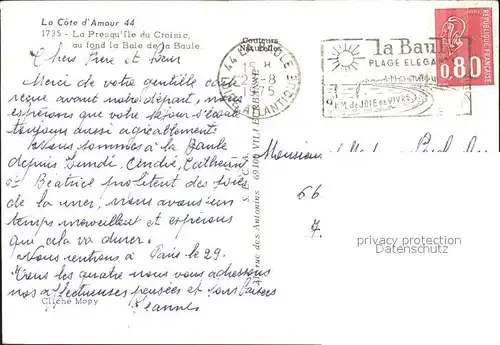 La Côte d'Amour 44
1735 - La Presqu'Ile du Croisic,
au fond la Baie de la Baule
Couleurs
Naturelles
Chers Frère et Sœur
Merci de votre gentille carte
reçue avant notre départ, nous
espérons que votre séjour s'écoule
toujours aussi agréablement
Nous sommes à la Baule
depuis Lundi, André, Catherine
et Béatrice profitent des joies
de la mer, nous avons un
temps merveilleux et espérons
que cela va durer.
Nous rentrons à Paris le 29.
Tous les quatre nous vous adressons
nos affectueuses pensées et bons baisers
Jeanne
Cliché Mopy
44 LA BAULE
15 H
8
1975
LOIRE ATLANTIQUE
la Baule
PLAGE ELEGANTE
KM. de JOIE de VIVRE
REPUBLIQUE FRANÇAISE
0,80
des Antonins 69100 VILLEURBANNE
Monsieur
66
7
privacy protection
Datenschutz